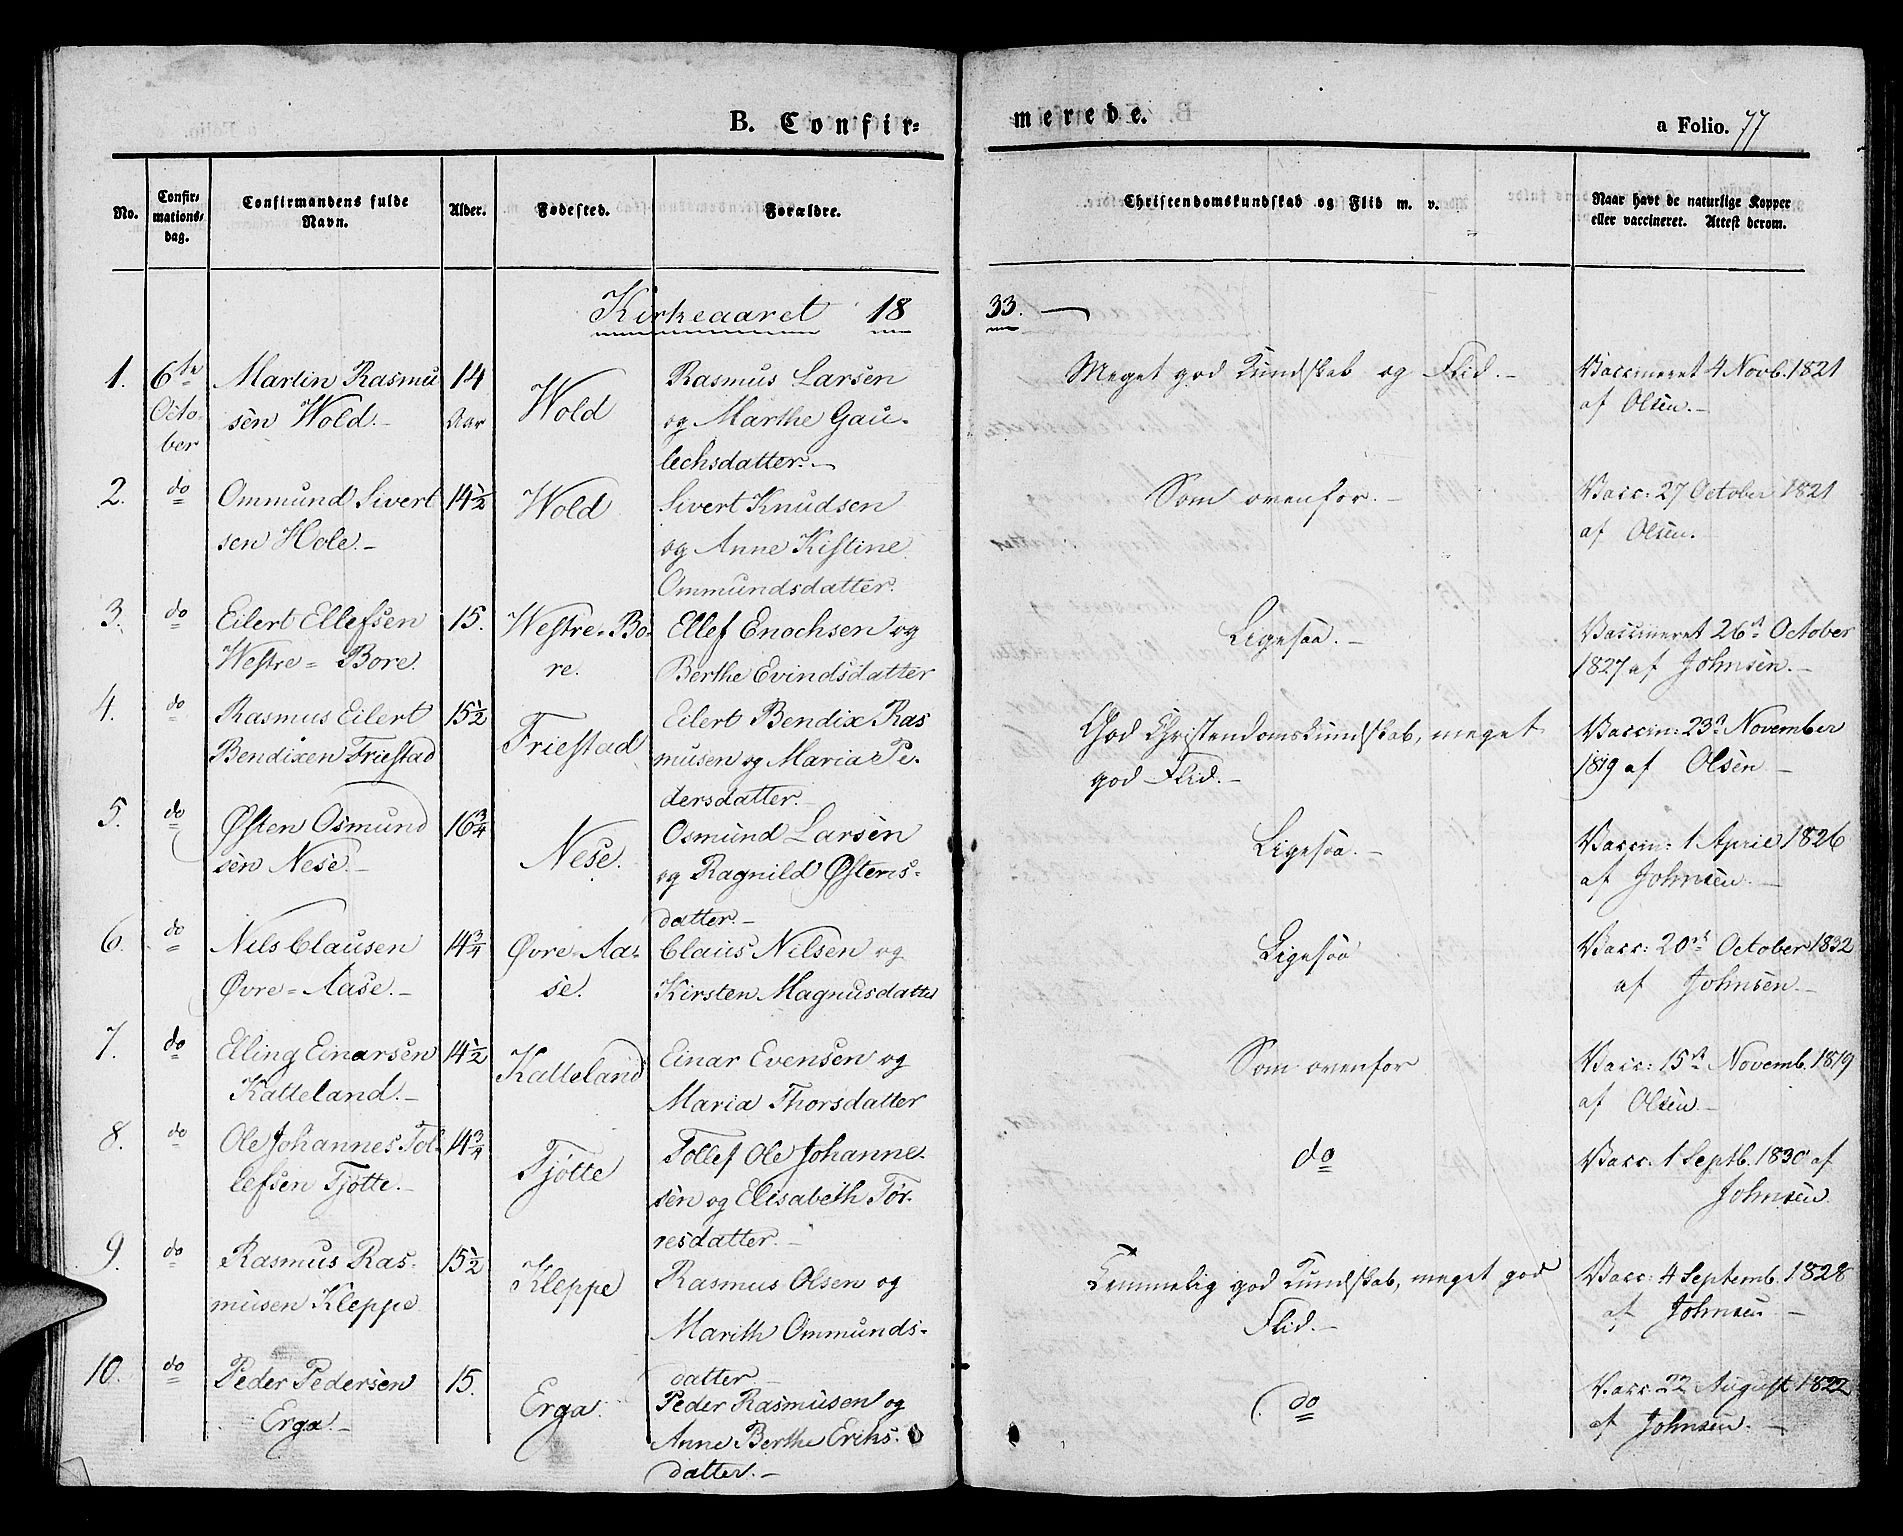 B. Confir- merede. a Folio. 77
No. Confir-mations-dag. Confirmandens fulde Navn. Alder. Fødested. Forældre. Christendomskundskab og Flid m. v. Naar havt de naturlige Kopper eller vaccineret. Attest derom.
Kirkeaaret 1833.
1. 6te Martin Rasmu 14 Wold Rasmus Larsen Meget god Kundskab og Flid. Vaccineret 4 Novb. 1821
Octo- sen Wold. Aar og Marthe Gau- af Olsen.
ber lechsdatter.
2. do Ommund Sivert 14½ Wold Sivert Knudsen Som ovenfor. Vacc: 27 October 1821
sen Hole. og Anne Kistine af Olsen.
Ommundsdatter.
3. do Eilert Ellefsen 15. Westre-Bo- Ellef Enochsen og Ligesaa. Vaccineret 26de October
Westre-Bore. re. Berthe Evindsdatter 1827 af Johnsen.
4. do Rasmus Eilert 15½ Friestad Eilert Bendix Ras God Christendomskundskab, meget Vaccin: 23de November
Bendixen Friestad musen og Maria Pe- god Flid. 1819 af Olsen
dersdatter.
5. do Østen Osmund 16¾ Nese. Osmund Larsen Ligesaa. Vaccin: 1 April 1826
sen Nese. og Ragnild Østens- af Johnsen.
datter.
6. do Nils Clausen 14¾ Øvre-Aa- Claus Nilsen og Ligesaa Vacc: 20de October 1832
Øvre-Aase. se. Kirsten Magnusdatter af Johnsen.
7. do Elling Einarsen 14½ Katteland Einar Evensen og Som ovenfor Vacc: 15de Novemb. 1819
Katteland. Maria Thorsdatter af Olsen.
8. do Ole Johannes Tol- 14¾ Tjøtte Tollef Ole Johanne- do Vacc: 1 Septb. 1830 af
lefsen Tjøtte. sen og Elisabeth Tør- Johnsen
resdatter.
9. do Rasmus Ras- 15½ Kleppe Rasmus Olsen og Temmelig god Kundskab, meget god Vacc: 4 Septemb. 1828
musen Kleppe Marith Ommunds- Flid. af Johnsen
datter
10. do Peder Pedersen 15. Erga. Peder Rasmusen og do Vacc: 22 August 1822
Erga. Anne Berthe Eriks- af Johnsen.
datter.